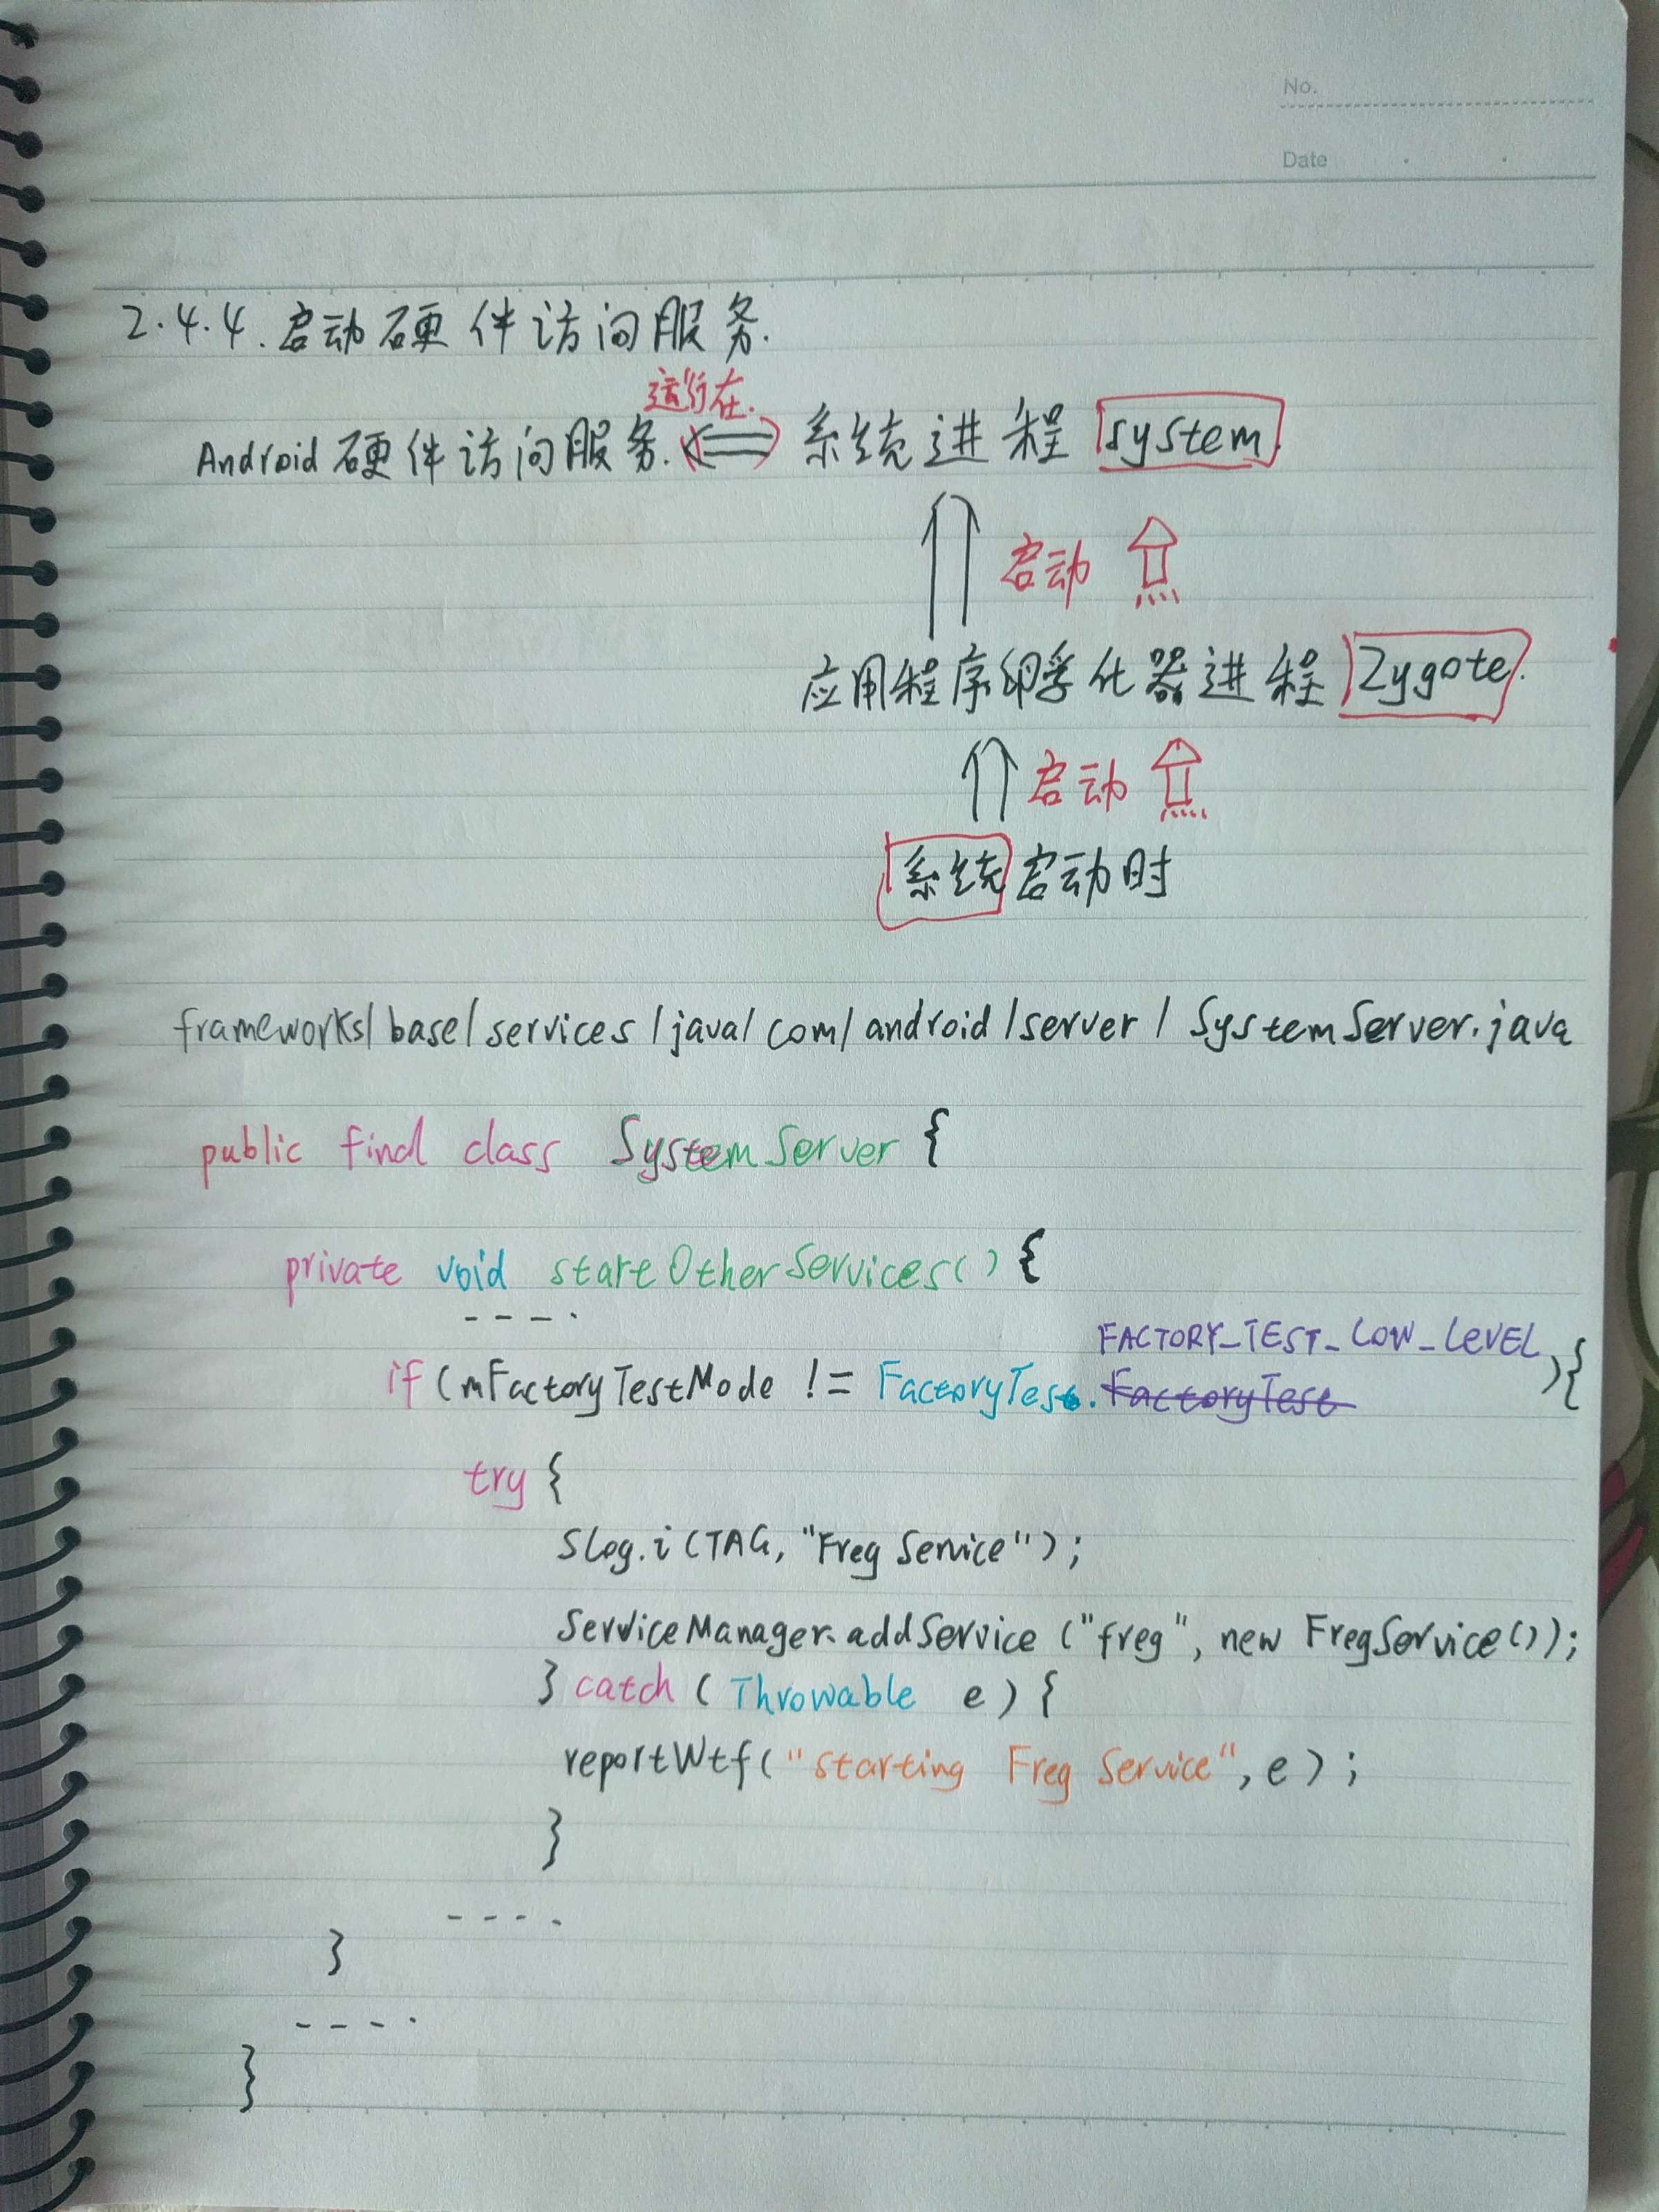 No.
Date
2.4.4.启动硬件访问服务.
运行在.
Android硬件访问服务. 系统进程 system.
启动
应用程序孵化器进程 Zygote.
启动
系统启动时
frameworks/base/services/java/com/android/server/SystemServer.java
public final class SystemServer {
private void startOtherServices() {
----.
FACTORY_TEST_LOW_LEVEL
if (mFactoryTestMode != FactoryTest. FactoryTest ){
try {
Slog.i(TAG, "Freg Service");
ServiceManager.addService ("freg", new FregService());
} catch (Throwable e) {
reportWtf("starting Freg Service", e);
}
----.
}
----.
}